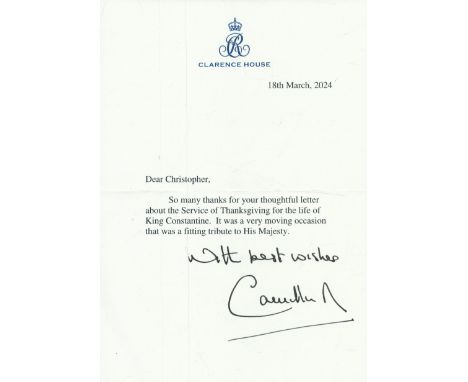 CLARENCE HOUSE
18th March, 2024
Dear Christopher,
So many thanks for your thoughtful letter
about the Service of Thanksgiving for the life of
King Constantine. It was a very moving occasion
that was a fitting tribute to His Majesty.
With best wishes
Camilla R